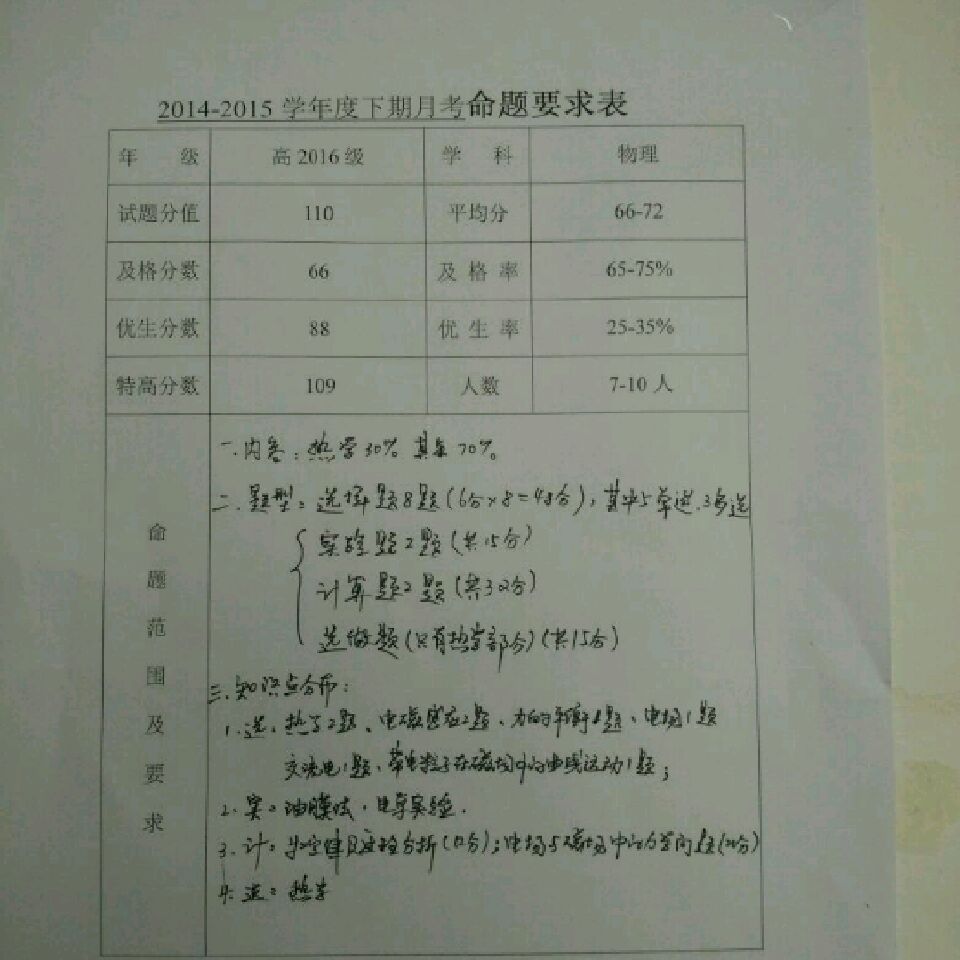 2014-2015 学年度下期月考命题要求表
年 级 高 2016 级 学 科 物理
试题分值 110 平均分 66-72
及格分数 66 及 格 率 65-75%
优生分数 88 优 生 率 25-35%
特高分数 109 人数 7-10 人
命题范围及要求
一.内容:热学30% 其余70%。
二.题型:选择题8题(6分×8=48分),其中5单选.3多选
实验题2题(共15分)
计算题2题(共32分)
选做题(只有热学部分)(共15分)
三.知识点分布:
1.选:热学2题、电磁感应2题、力的平衡1题、电场1题
交流电1题、带电粒子在磁场中的曲线运动1题;
2.实:油膜法、电学实验.
3.计:过程分析(12分);电场与磁场中的力学问题(20分)
4.选:热学